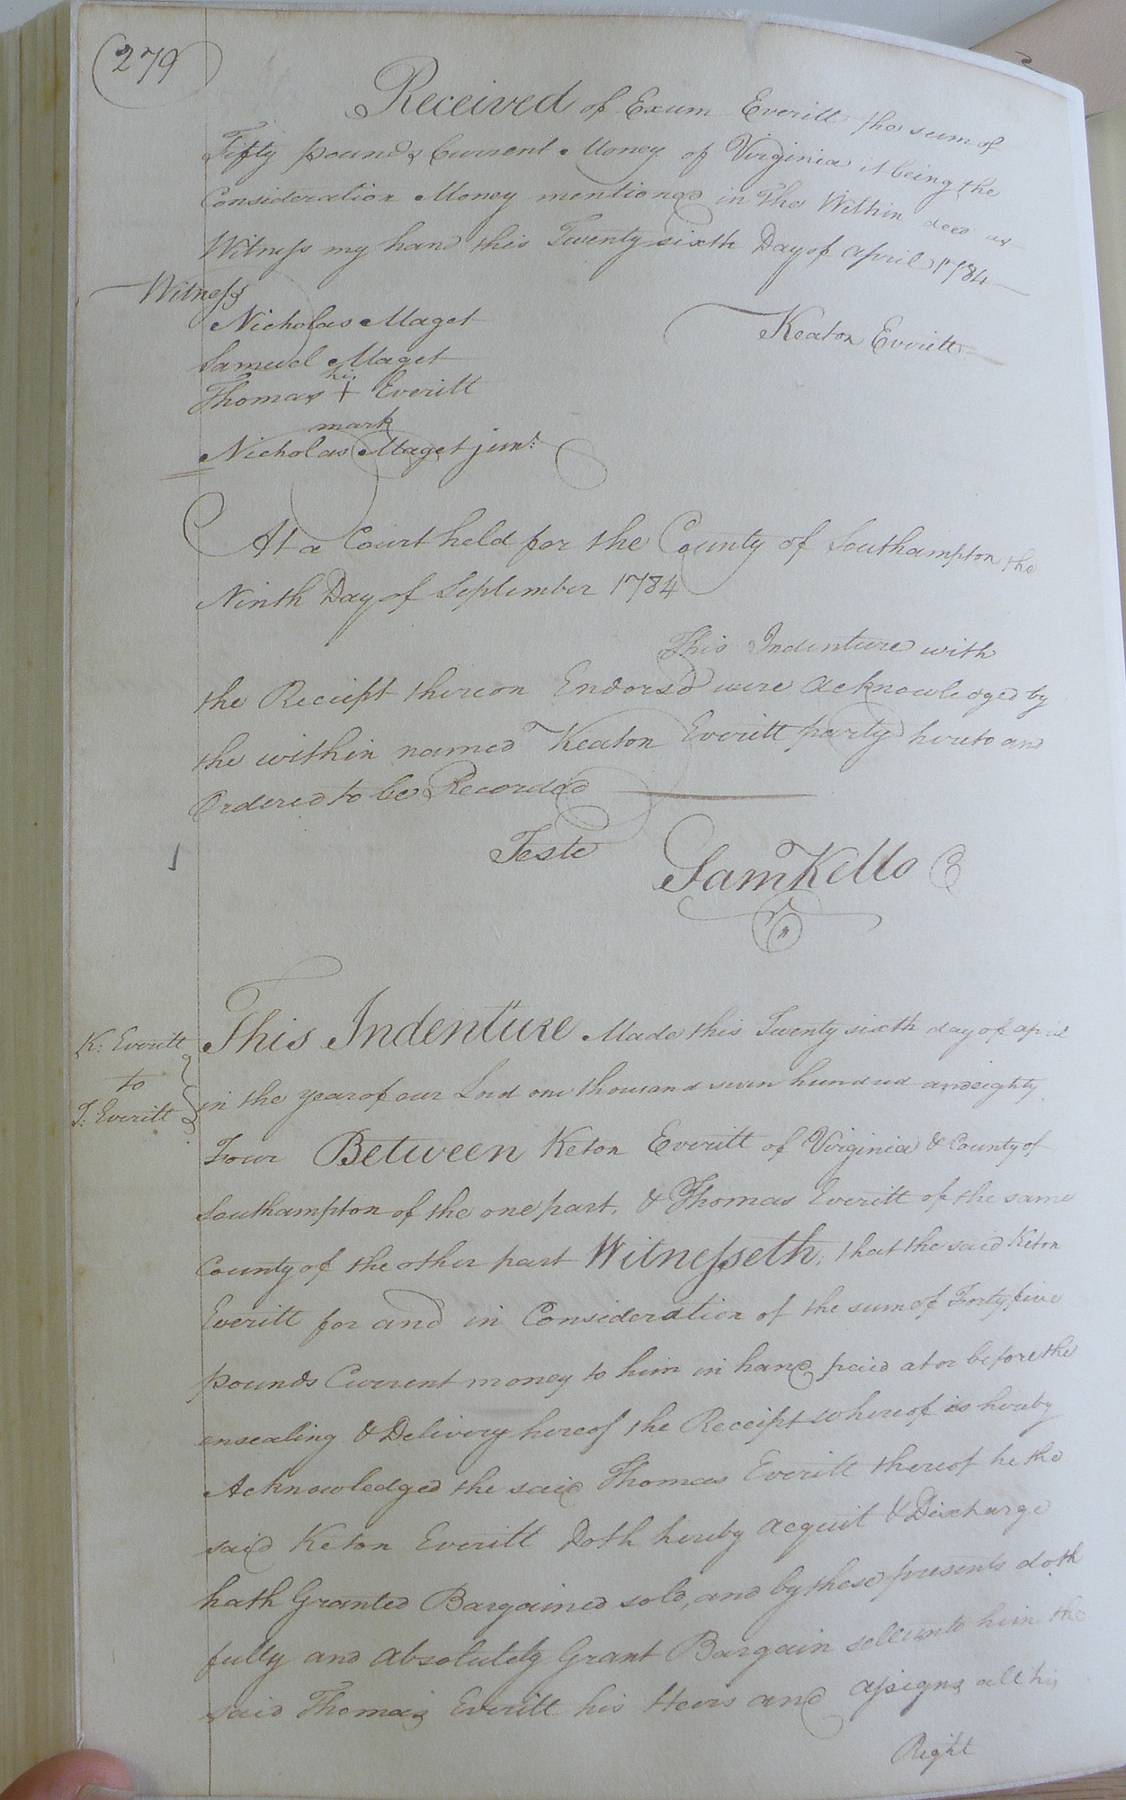 279
Received of Exum Everitt the sum of
Fifty pounds Current Money of Virginia it being the
Consideration Money mentioned in the Within deed as
Witness my hand this Twenty sixth Day of April 1784
Witness
Nicholas Maget
Keaton Everitt
Samuel Maget
his
Thomas + Everitt
mark
Nicholas Maget junr:
At a Court held for the County of Southampton the
Ninth Day of September 1784
This Indenture with
the Receipt thereon Endors'd were Acknowledged by
the within named Keaton Everitt party hereto and
Ordered to be Recorded
Teste
Sam Kello C
K: Everitt
to
T: Everitt
This Indenture Made this Twenty sixth day of april
in the year of our Lord one thousand seven hundred and eighty
Four Between Keton Everitt of Virginia & County of
Southampton of the one part, & Thomas Everitt of the same
County of the other part Witnesseth; that the said Keton
Everitt for and in Consideration of the sum of Forty five
pounds Current money to him in hand paid at or before the
ensealing & Delivery hereof the Receipt whereof is hereby
Acknowledged the said Thomas Everitt thereof he the
said Keton Everitt Doth hereby acquit & Discharge
hath Granted Bargained sold, and by these presents doth
fully and absolutely Grant Bargain sell unto him the
said Thomas Everitt his Heirs and assigns all his
Right